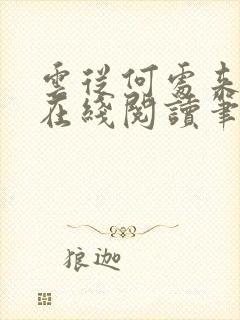 雲從何處來
在綫閱讀筆
狼迦